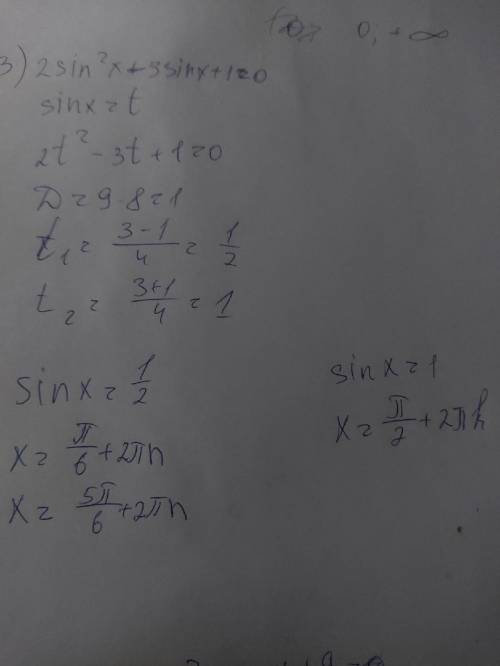 0; +∞
3) 2sin²x - 3sinx + 1 = 0
sinx = t
2t² - 3t + 1 = 0
D = 9 - 8 = 1
t₁ = (3-1)/4 = 1/2
t₂ = (3+1)/4 = 1
sinx = 1/2
x = π/6 + 2πn
x = 5π/6 + 2πn
sinx = 1
x = π/2 + 2πk